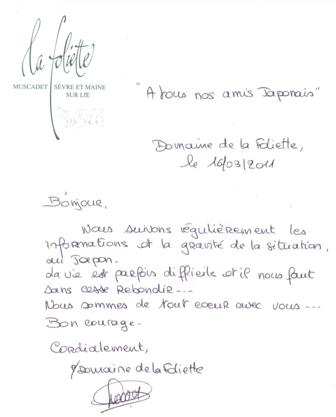 la foliette
MUSCADET SÈVRE ET MAINE
SUR LIE
"A tous nos amis Japonais"
Domaine de la Foliette,
le 16/03/2011
Bonjour,
Nous suivons régulièrement les
informations et la gravité de la situation,
au Japon.
La vie est parfois difficile et il nous faut
sans cesse Rebondir ---
Nous sommes de tout coeur avec vous ---
Bon courage.
Cordialement,
P/Domaine de la Foliette